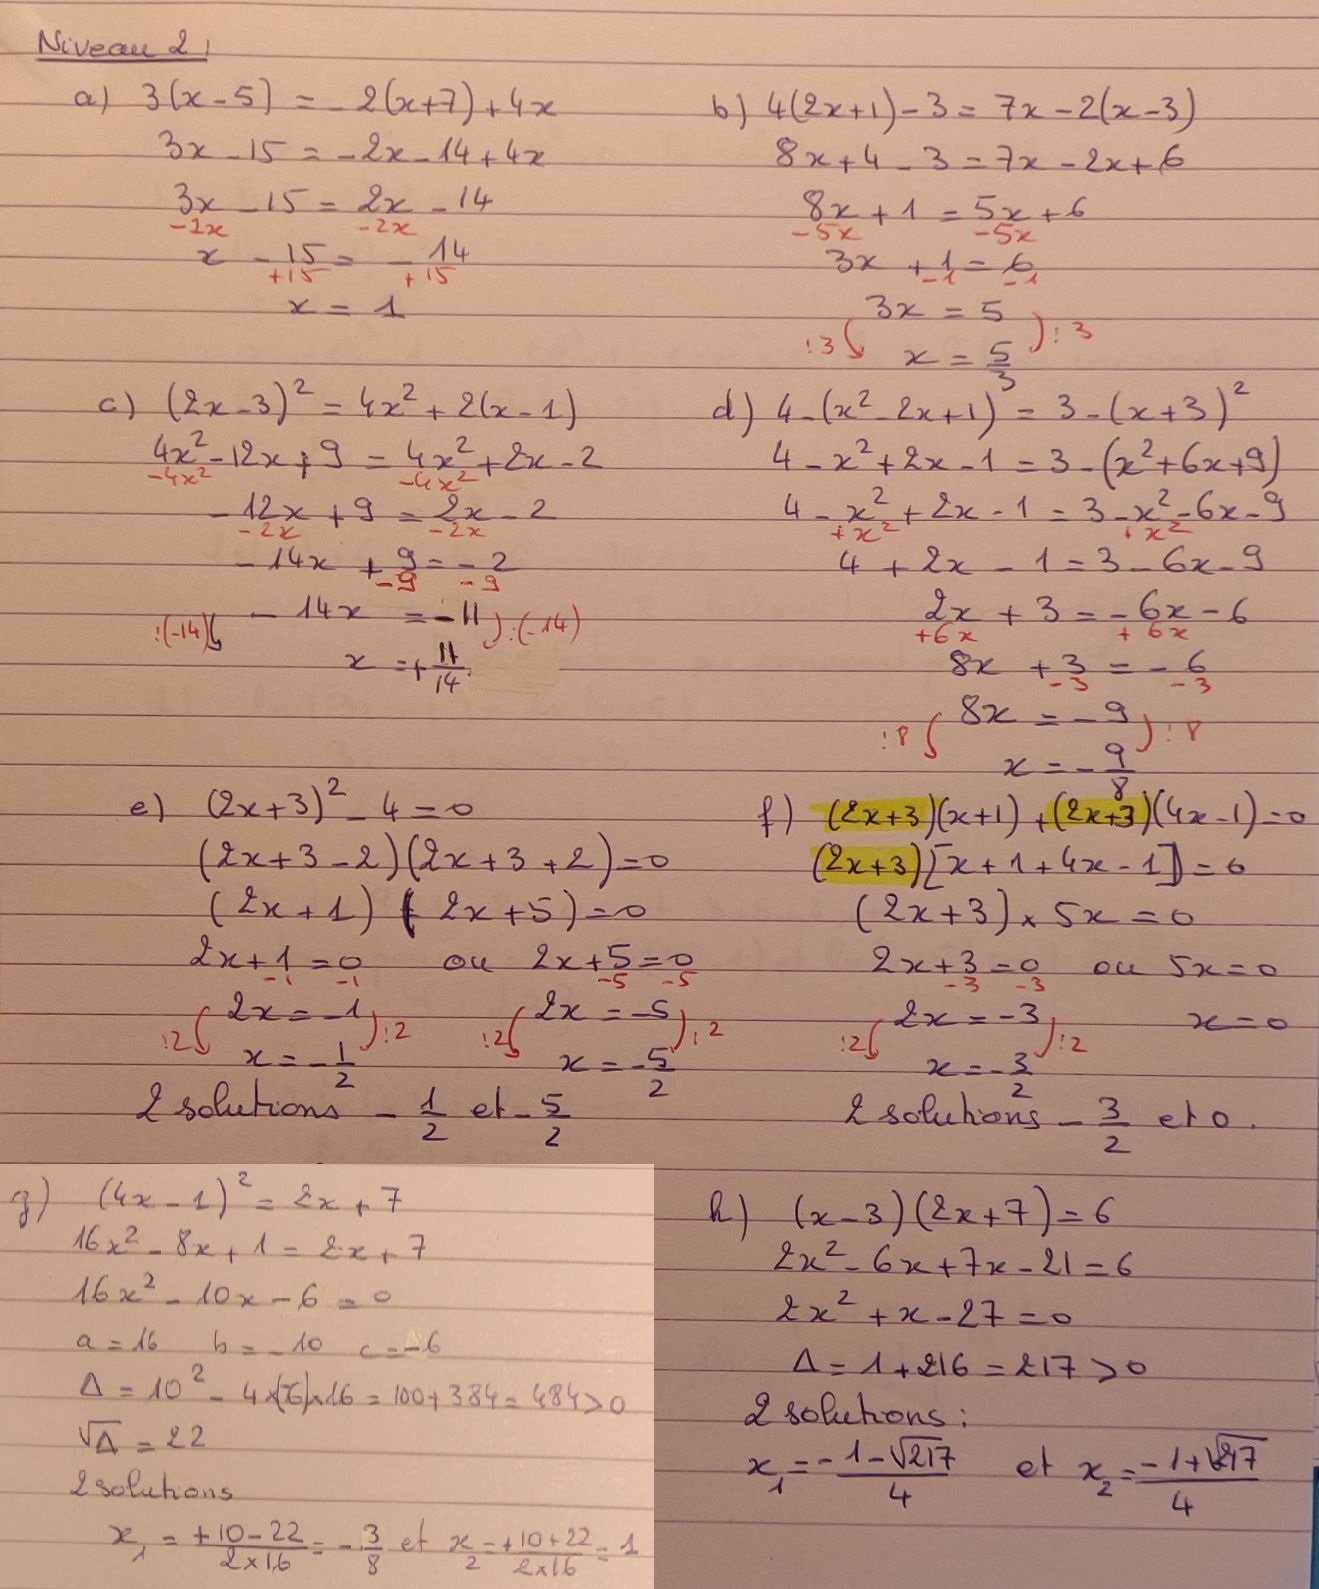 Niveau 2 :
a) 3(x-5) = -2(x+7)+4x
3x-15 = -2x-14+4x
3x-15 = 2x-14
-2x -2x
x-15 = -14
+15 +15
x = 1
b) 4(2x+1)-3 = 7x-2(x-3)
8x+4-3 = 7x-2x+6
8x+1 = 5x+6
-5x -5x
3x+1 = 6
-1 -1
3x = 5
:3 :3
x = 5/3
c) (2x-3)² = 4x²+2(x-1)
4x²-12x+9 = 4x²+2x-2
-4x² -4x²
-12x+9 = 2x-2
-2x -2x
-14x+9 = -2
-9 -9
-14x = -11
:(-14) :(-14)
x = +11/14
d) 4-(x²-2x+1) = 3-(x+3)²
4-x²+2x-1 = 3-(x²+6x+9)
4-x²+2x-1 = 3-x²-6x-9
+x² +x²
4+2x-1 = 3-6x-9
2x+3 = -6x-6
+6x +6x
8x+3 = -6
-3 -3
8x = -9
:8 :8
x = -9/8
e) (2x+3)²-4=0
(2x+3-2)(2x+3+2)=0
(2x+1)(2x+5)=0
2x+1=0 ou 2x+5=0
-1 -1 -5 -5
2x=-1 2x=-5
:2 :2 :2 :2
x=-1/2 x=-5/2
2 solutions -1/2 et -5/2
f) (2x+3)(x+1)+(2x+3)(4x-1)=0
(2x+3)[x+1+4x-1]=0
(2x+3)×5x=0
2x+3=0 ou 5x=0
-3 -3
2x=-3 x=0
:2 :2
x=-3/2
2 solutions -3/2 et 0.
g) (4x-1)² = 2x+7
16x²-8x+1 = 2x+7
16x²-10x-6 = 0
a=16 b=-10 c=-6
Δ = 10²-4×(-6)×16 = 100+384 = 484>0
√Δ = 22
2 solutions
x₁ = +10-22/2×16 = -3/8 et x₂ = +10+22/2×16 = 1
h) (x-3)(2x+7)=6
2x²-6x+7x-21=6
2x²+x-27=0
Δ=1+216=217>0
2 solutions :
x₁ = -1-√217/4 et x₂ = -1+√217/4